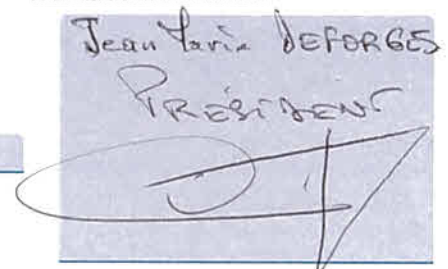 Jean Marie DEFORGES
PRÉSIDENT